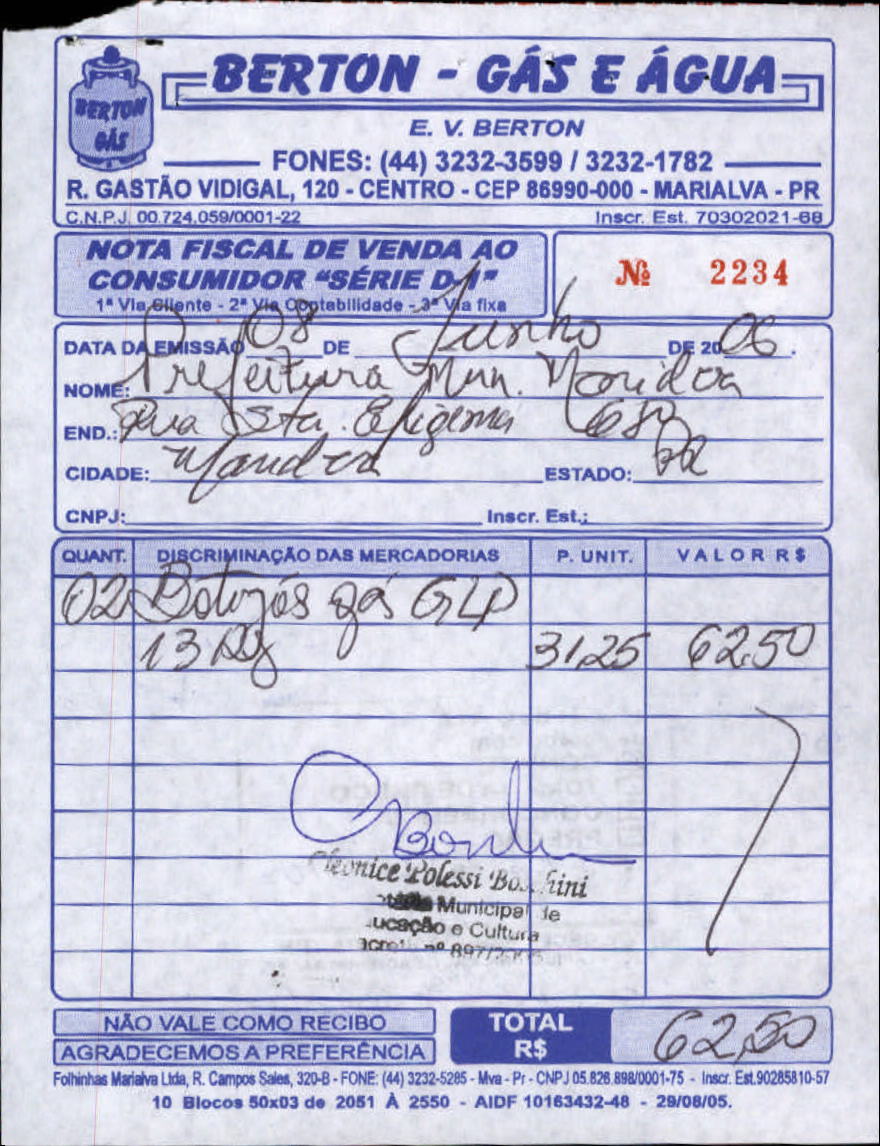 BERTON GÁS
BERTON - GÁS E ÁGUA
E. V. BERTON
FONES: (44) 3232-3599 / 3232-1782
R. GASTÃO VIDIGAL, 120 - CENTRO - CEP 86990-000 - MARIALVA - PR
C.N.P.J. 00.724.059/0001-22 Inscr. Est. 70302021-68
NOTA FISCAL DE VENDA AO
CONSUMIDOR "SÉRIE D-1"
1ª Via Cliente - 2ª Via Contabilidade - 3ª Via fixa
Nº 2234
DATA DA EMISSÃO 08 DE Junho DE 2006.
NOME: Prefeitura Mun.
END.: Rua Sta. Efigenia 680
CIDADE: ESTADO: PR
CNPJ: Inscr. Est.:
QUANT. DISCRIMINAÇÃO DAS MERCADORIAS P. UNIT. VALOR R$
02 Botijós gás GLP
13 Kg 31,25 62,50
Cleonice Polessi
Municipal de
ucação e Cultura
nº 897/
NÃO VALE COMO RECIBO
AGRADECEMOS A PREFERÊNCIA
TOTAL R$ 62,50
Folhinhas Marialva Ltda, R. Campos Sales, 320-B - FONE: (44) 3232-5285 - Mva - Pr - CNPJ 05.826.898/0001-75 - Inscr. Est.90285810-57
10 Blocos 50x03 de 2051 À 2550 - AIDF 10163432-48 - 29/08/05.